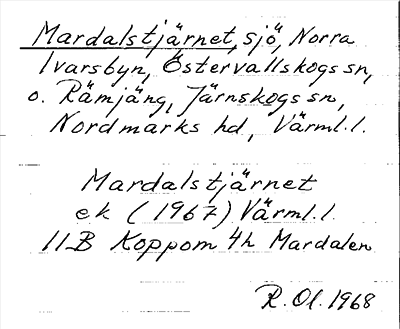 Mardalstjärnet, sjö, Norra
Ivarsbyn, Östervallskogs sn,
o. Rämjäng, Järnskogs sn,
Nordmarks hd, Värml.l.
Mardalstjärnet
ek (1967) Värml.l.
11B Koppom 4h Mardalen
R. Ol. 1968